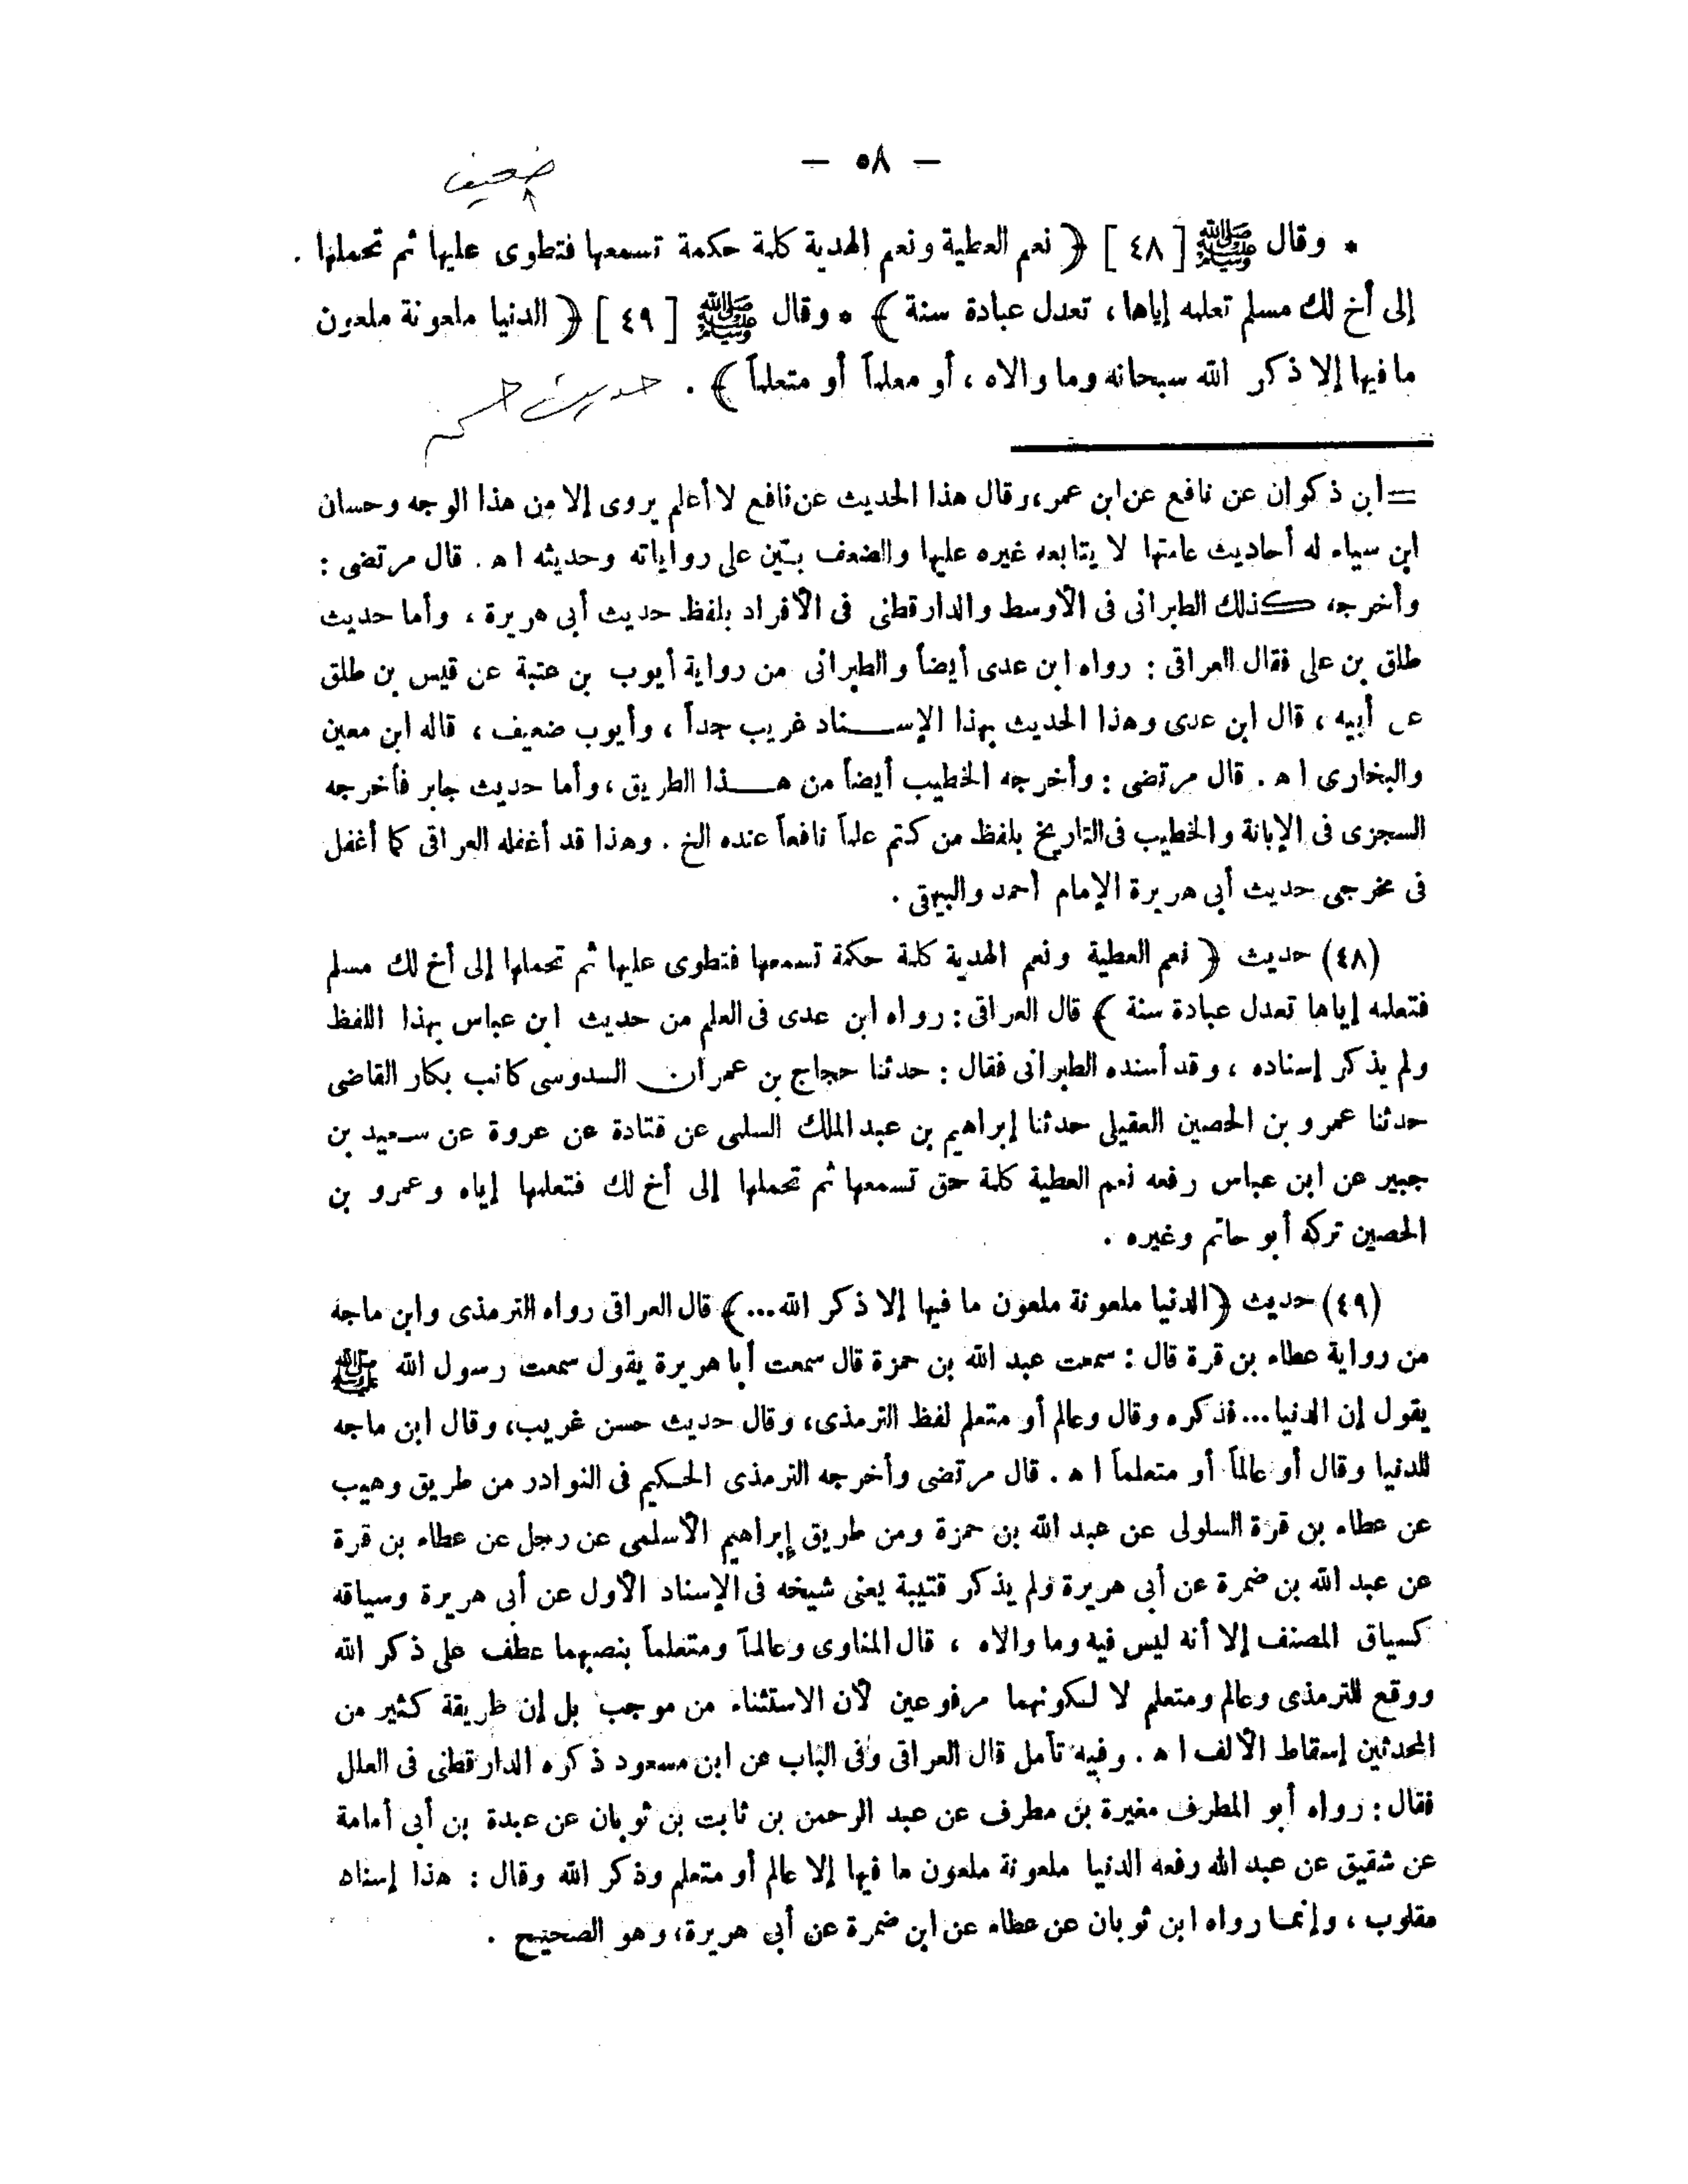 — ٥٨ —
ضعيف
* وقال ﷺ [ ٤٨ ] ﴿ نعم العطية ونعم الهدية كلمة حكمة تسمعها فتطوى عليها ثم تحملها .
إلى أخ لك مسلم تعلمه إياها ، تعدل عبادة سنة ﴾ * وقال ﷺ [ ٤٩ ] ﴿ الدنيا ملعونة ملعون
ما فيها إلا ذكر الله سبحانه وما والاه ، أو معلماً أو متعلماً ﴾ . حديث حسن
= ابن ذكوان عن نافع عن ابن عمر ، وقال هذا الحديث عن نافع لا أعلم يروى إلا من هذا الوجه وحسان
ابن سياه له أحاديث عامتها لا يتابعه غيره عليها والضعف بيّن على رواياته وحديثه ا ه . قال مرتضى :
وأخرجه كذلك الطبرانى فى الأوسط والدارقطنى فى الأفراد بلفظ حديث أبى هريرة ، وأما حديث
طلق بن على فقال العراقى : رواه ابن عدى أيضاً والطبرانى من رواية أيوب بن عتبة عن قيس بن طلق
عن أبيه ، قال ابن عدى وهذا الحديث بهذا الإســناد غريب جداً ، وأيوب ضعيف ، قاله ابن معين
والبخارى ا ه . قال مرتضى : وأخرجه الخطيب أيضاً من هــذا الطريق ، وأما حديث جابر فأخرجه
السجزى فى الإبانة والخطيب فى التاريخ بلفظ من كتم علماً نافعاً عنده الخ . وهذا قد أغفله العراقى كما أغفل
فى مخرجى حديث أبى هريرة الإمام أحمد والبيهقى .
(٤٨) حديث ﴿ نعم العطية ونعم الهدية كلمة حكمة تسمعها فتطوى عليها ثم تحملها إلى أخ لك مسلم
فتعلمه إياها تعدل عبادة سنة ﴾ قال العراقى : رواه ابن عدى فى العلم من حديث ابن عباس بهذا اللفظ
ولم يذكر إسناده ، وقد أسنده الطبرانى فقال : حدثنا حجاج بن عمران السدوسى كاتب بكار القاضى
حدثنا عمرو بن الحصين العقيلى حدثنا إبراهيم بن عبد الملك السلمى عن قتادة عن عروة عن سعيد بن
جبير عن ابن عباس رفعه نعم العطية كلمة حق تسمعها ثم تحملها إلى أخ لك فتعلمها إياه وعمرو بن
الحصين تركه أبو حاتم وغيره .
(٤٩) حديث ﴿ الدنيا ملعونة ملعون ما فيها إلا ذكر الله ... ﴾ قال العراقى رواه الترمذى وابن ماجه
من رواية عطاء بن قرة قال : سمعت عبد الله بن حمزة قال سمعت أبا هريرة يقول سمعت رسول الله ﷺ
يقول إن الدنيا ... فذكره وقال وعالم أو متعلم لفظ الترمذى ، وقال حديث حسن غريب ، وقال ابن ماجه
للدنيا وقال أو عالماً أو متعلماً ا ه . قال مرتضى وأخرجه الترمذى الحكيم فى النوادر من طريق وهيب
عن عطاء بن قرة السلولى عن عبد الله بن حمزة ومن طريق إبراهيم الأسلمى عن رجل عن عطاء بن قرة
عن عبد الله بن ضمرة عن أبى هريرة ولم يذكر قتيبة يعنى شيخه فى الإسناد الأول عن أبى هريرة وسياقه
كسياق المصنف إلا أنه ليس فيه وما والاه ، قال المناوى وعالماً ومتعلماً بنصبهما عطف على ذكر الله
ووقع للترمذى وعالم ومتعلم لا لكونهما مرفوعين لأن الاستثناء من موجب بل إن طريقة كثير من
المحدثين إسقاط الألف ا ه . وفيه تأمل قال العراقى وفى الباب عن ابن مسعود ذكره الدارقطنى فى العلل
فقال : رواه أبو المطرف مغيرة بن مطرف عن عبد الرحمن بن ثابت بن ثوبان عن عبدة بن أبى أمامة
عن شقيق عن عبد الله رفعه الدنيا ملعونة ملعون ما فيها إلا عالم أو متعلم وذكر الله وقال : هذا إسناد
مقلوب ، وإنما رواه ابن ثوبان عن عطاء عن ابن ضمرة عن أبى هريرة ، وهو الصحيح .